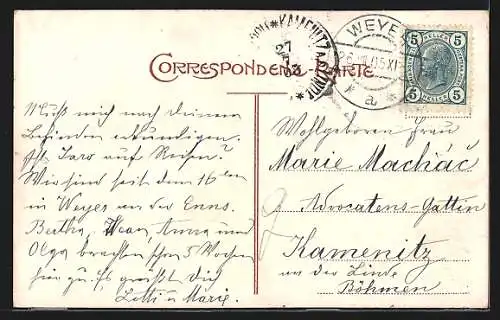 CORRESPONDENZ-KARTE
KAMENITZ A.D. LINDE
27
WEYER
5 HELLER 5
5 5
Muß mich nach deinem
Befinden erkundigen.
Ist Jaro auf Reisen?
Wir sind seit dem 16ten
in Weyer an der Enns.
Bertha, Anna und
Olga brachten schon 5 Wochen
hier zu. Es grüßt dich
Lotti u Marie.
Wohlgeboren Frau
Marie Macháč
Advocatens-Gattin
Kamenitz
an der Linde
Böhmen